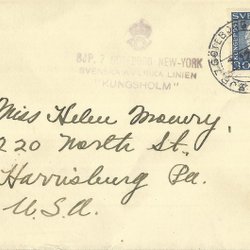 SVERIGE
BJP. 7 GÖTEBORG NEW-YORK
SVENSKA AMERIKA LINIEN
"KUNGSHOLM"
Miss Helen Mowery,
220 North St.
Harrisburg Pa.
U.S.A.